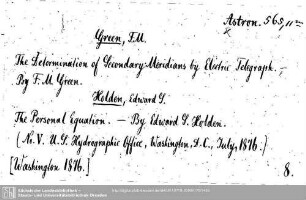 Astron. 565,11
Green, F.M.
The Determination of Secondary Meridians by Electric Telegraph. —
By F. M. Green.
Holden, Edward S.
The Personal Equation. — By Edward S. Holden.
(N. V. U. S. Hydrographic Office, Washington, D. C., July, 1876.)
[Washington 1876.]
8.